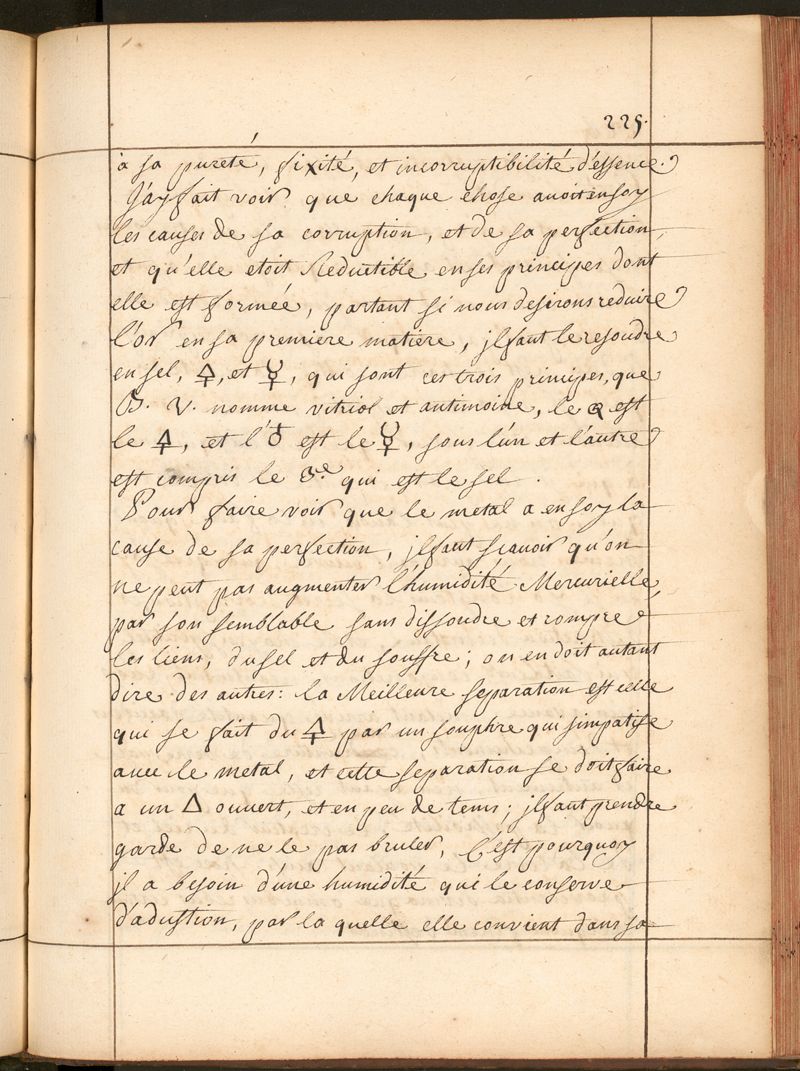 225.
à sa pureté, fixité, et incorruptibilité d'essence.
J'ay fait voir que chaque chose avoit en soy
les causes de sa corruption, et de sa perfection,
et qu'elle etoit Reductible en ses principes dont
elle est formée, partant si nous desirons reduire
l'or en sa premiere matiere, jl faut le resoudre
en sel, 🜍, et ☿, qui sont ces trois principes, que
B. V. nomme vitriol et antimoine, le est
le 🜍, et l'♁ est le ☿, sous l'un et l'autre
est compris le 3.e qui est le sel.
Pour faire voir que le metal a en soy la
cause de sa perfection, jl faut scavoir qu'on
ne peut pas augmenter l'humidité Mercurielle,
par son semblable sans dissoudre et rompre
les liens, du sel et du souffre; on en doit autant
dire des autres: la Meilleure separation est celle
qui se fait du 🜍 par un souphre qui simpatise
avec le metal, et cette separation se doit faire
a un △ ouvert, et en peu de tems; jl faut prendre
garde de ne le pas bruler, C'est pourquoy
jl a besoin d'une humidité qui le conserve
d'adustion, par la quelle elle convient dans sa